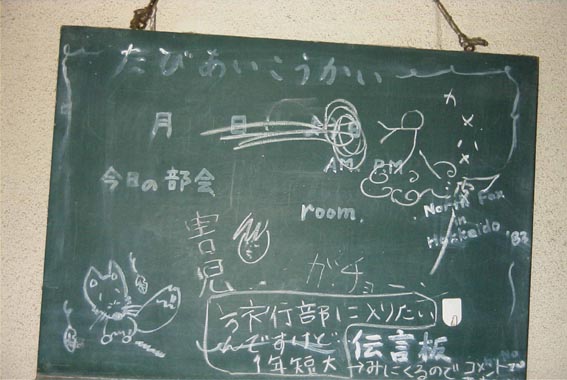 たびあいこうかい
月 日
AM. PM
今日の部会
room.
North Fox
in
Hokkaido '83
害児
ガチョーン
旅行部に入りたい
んですけど
1年短大
伝言板
→みにくるのでコメントで